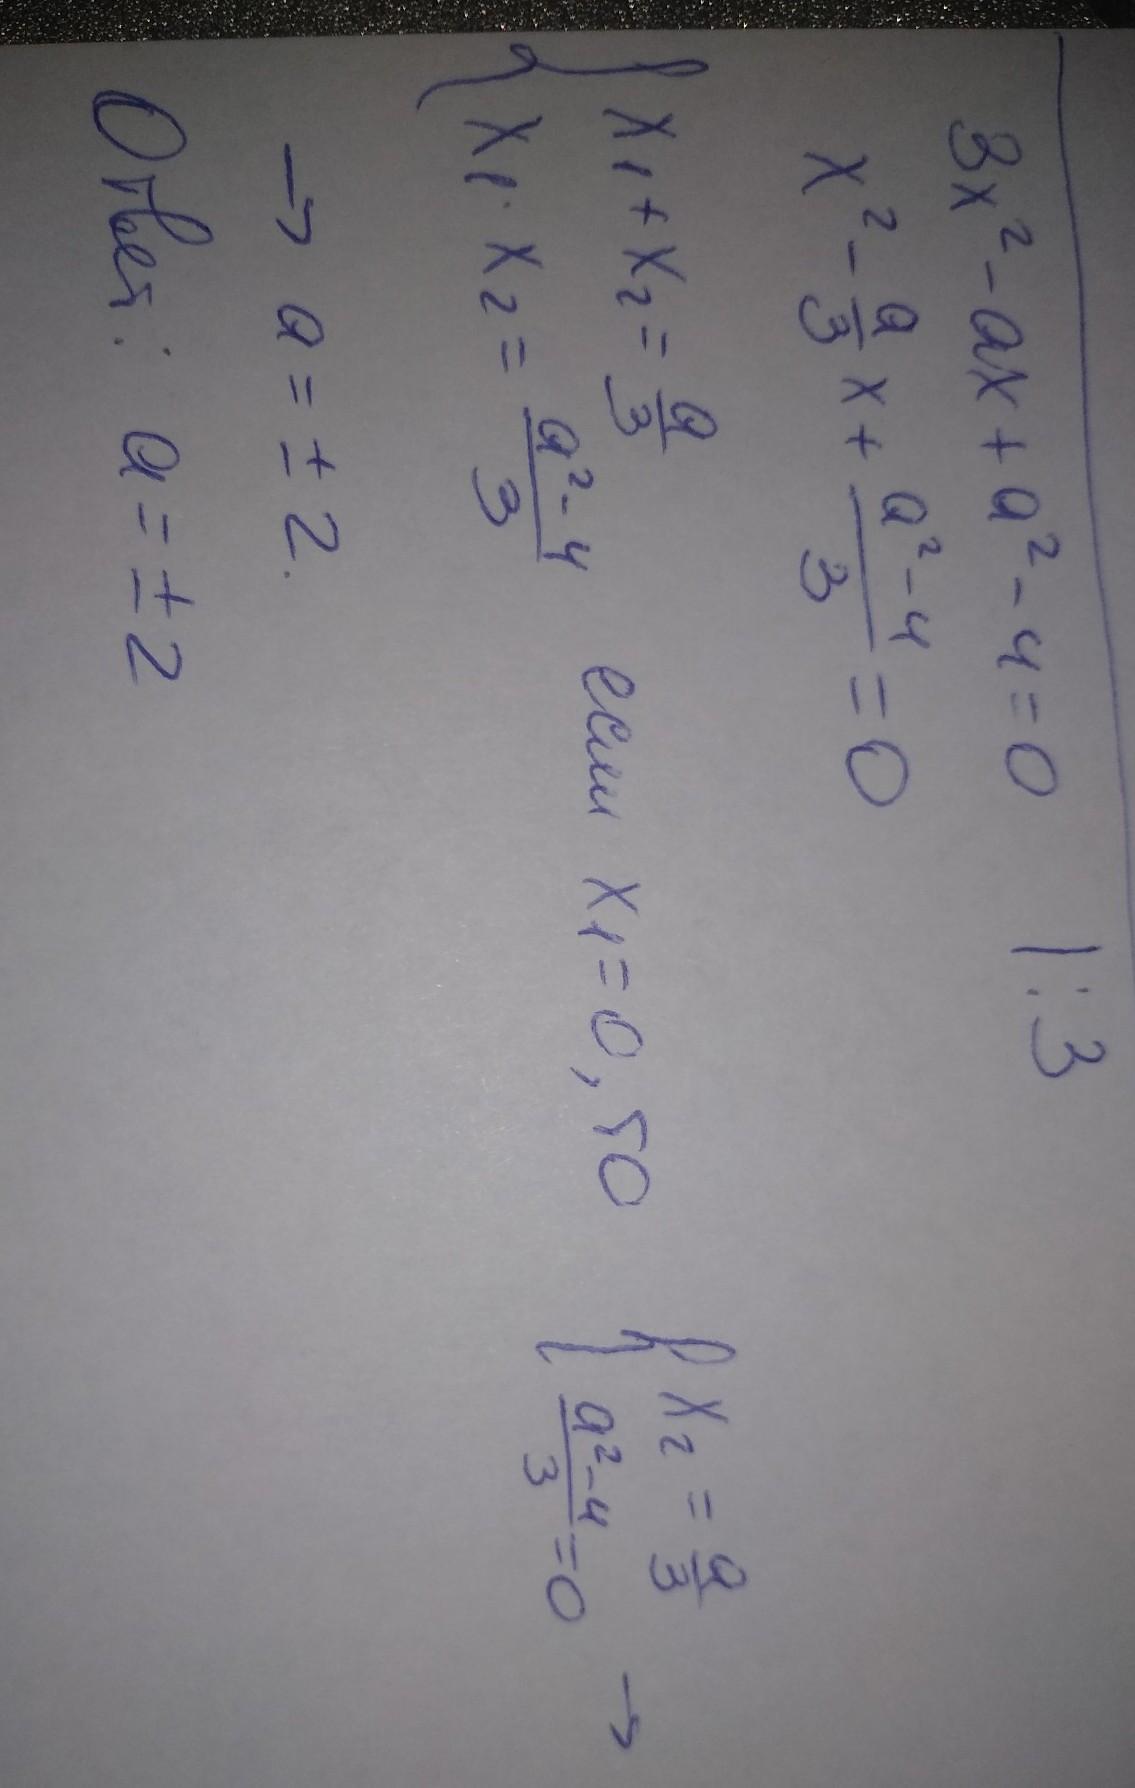 3x² - ax + a² - 4 = 0 |:3
x² - a/3 x + (a² - 4)/3 = 0
{ x₁ + x₂ = a/3
x₁ · x₂ = (a² - 4)/3
если x₁ = 0, то
{ x₂ = a/3
(a² - 4)/3 = 0 →
→ a = ± 2.
Ответ: a = ± 2